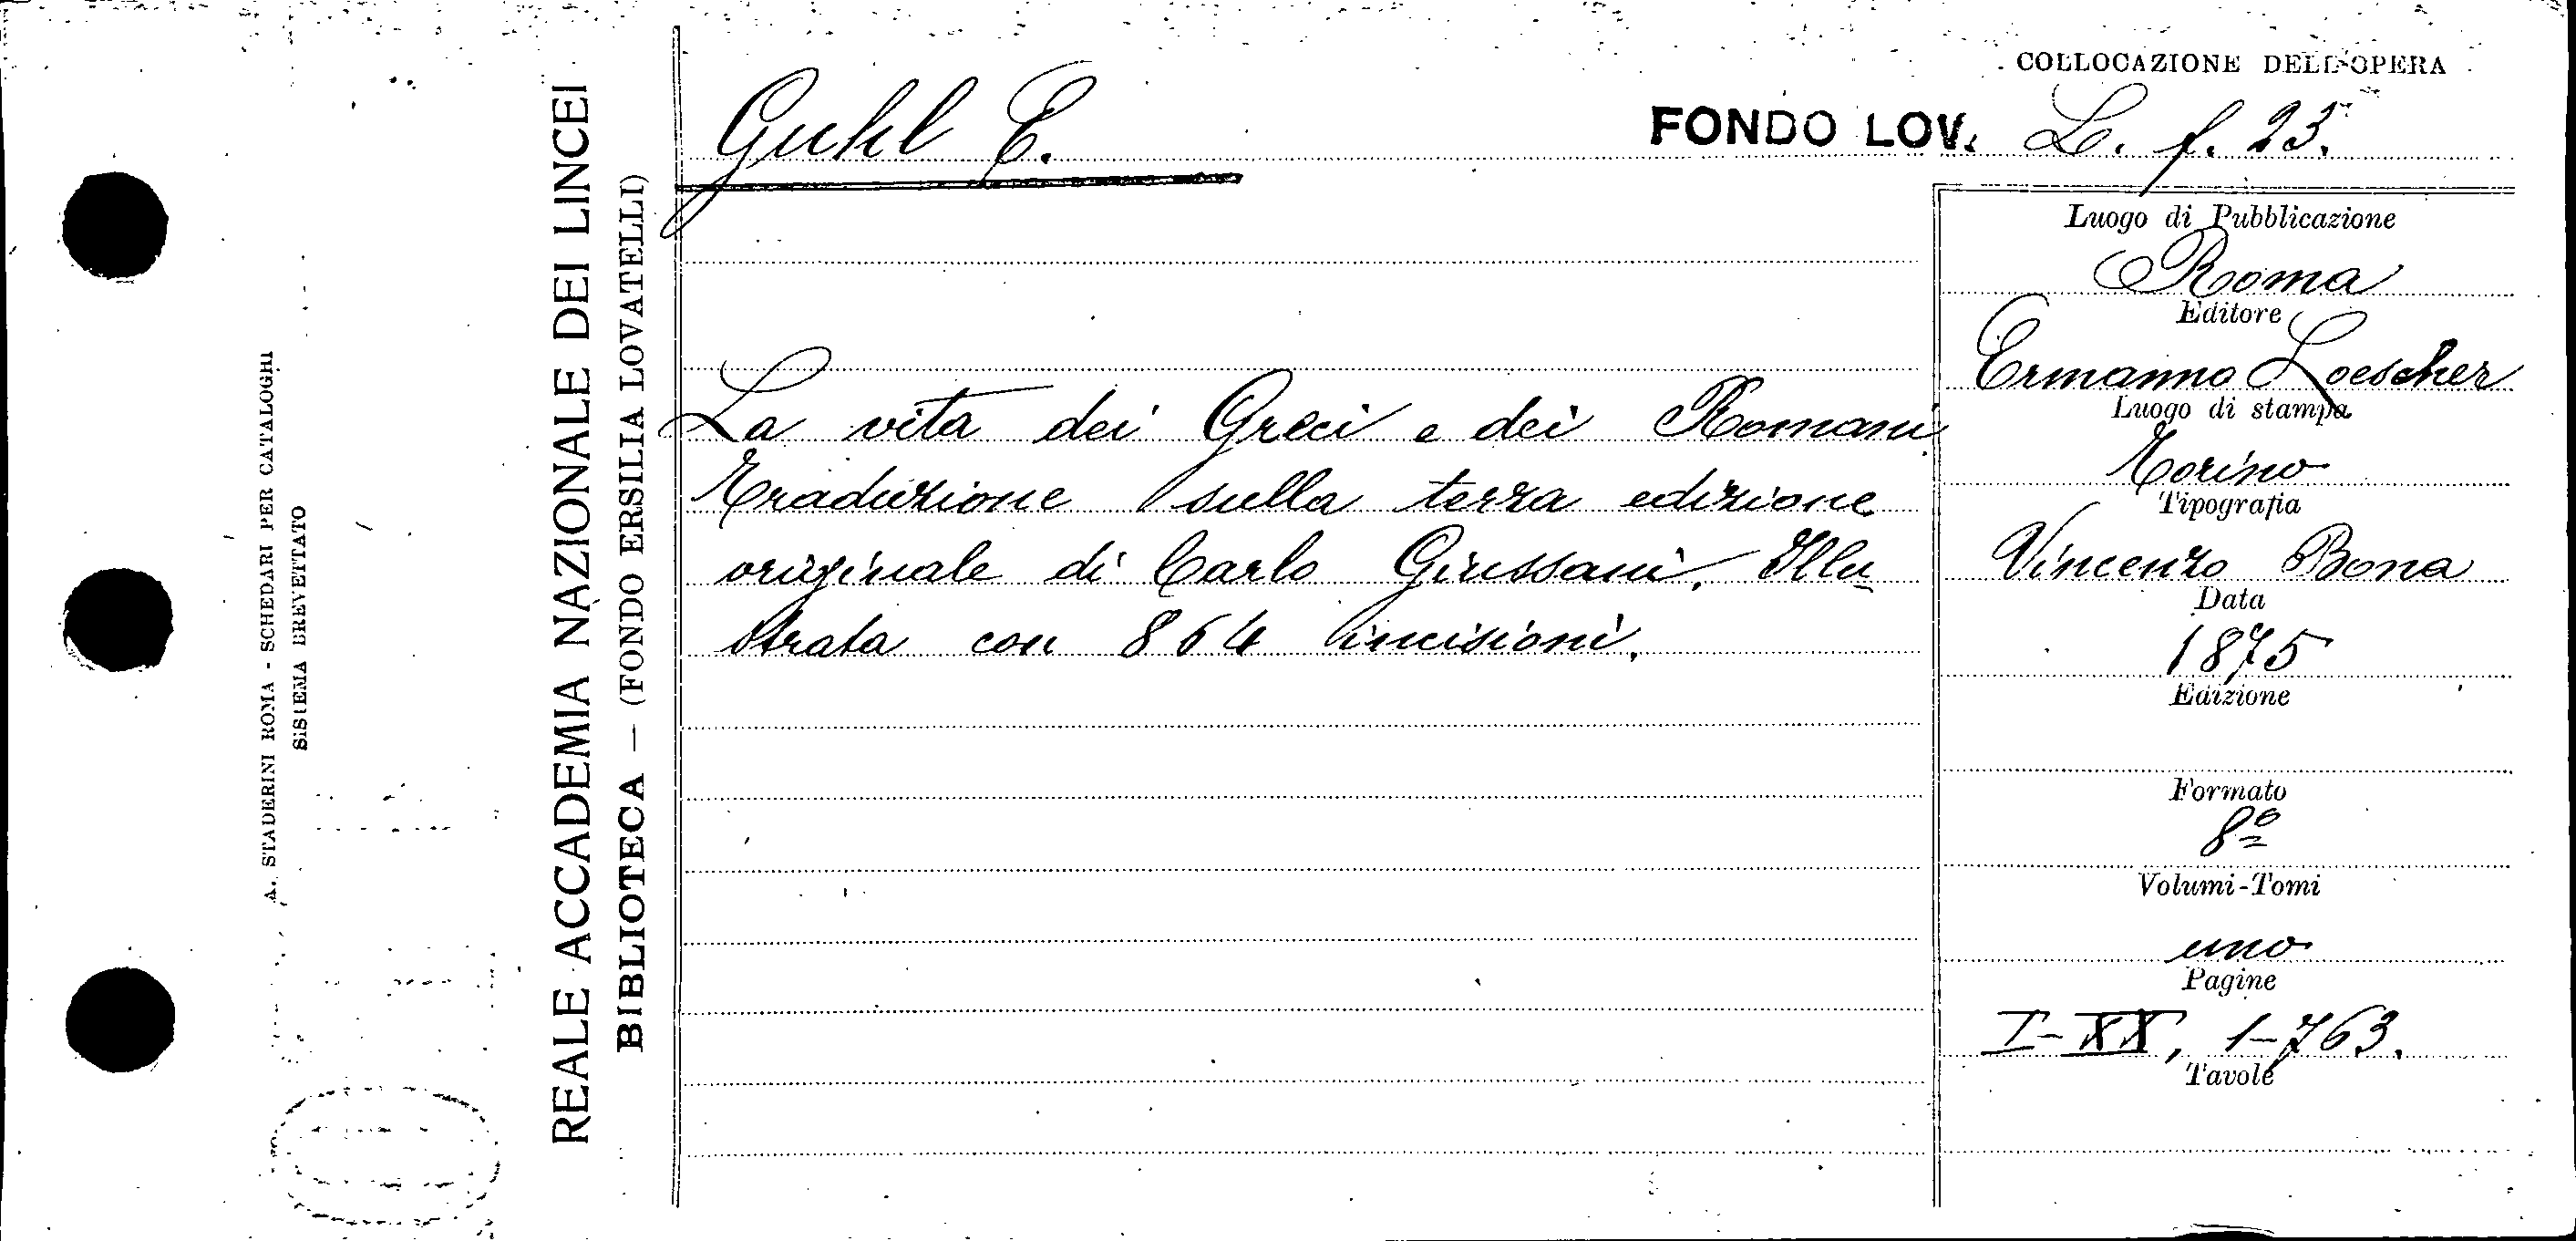 COLLOCAZIONE DELL'OPERA
Guhl E.
FONDO LOV. L. f. 23.
La vita dei Greci e dei Romani.
Traduzione sulla terza edizione
originale di Carlo Giussani. Illu
strata con 864 incisioni.
Luogo di Pubblicazione
Roma
Editore
Ermanno Loescher
Luogo di stampa
Torino
Tipografia
Vincenzo Bona
Data
1875
Edizione
Formato
8º
Volumi-Tomi
uno
Pagine
I-XX, 1-763.
Tavole
REALE ACCADEMIA NAZIONALE DEI LINCEI
BIBLIOTECA — (FONDO ERSILIA LOVATELLI)
A. STADERINI ROMA - SCHEDARI PER CATALOGHI
SISTEMA BREVETTATO